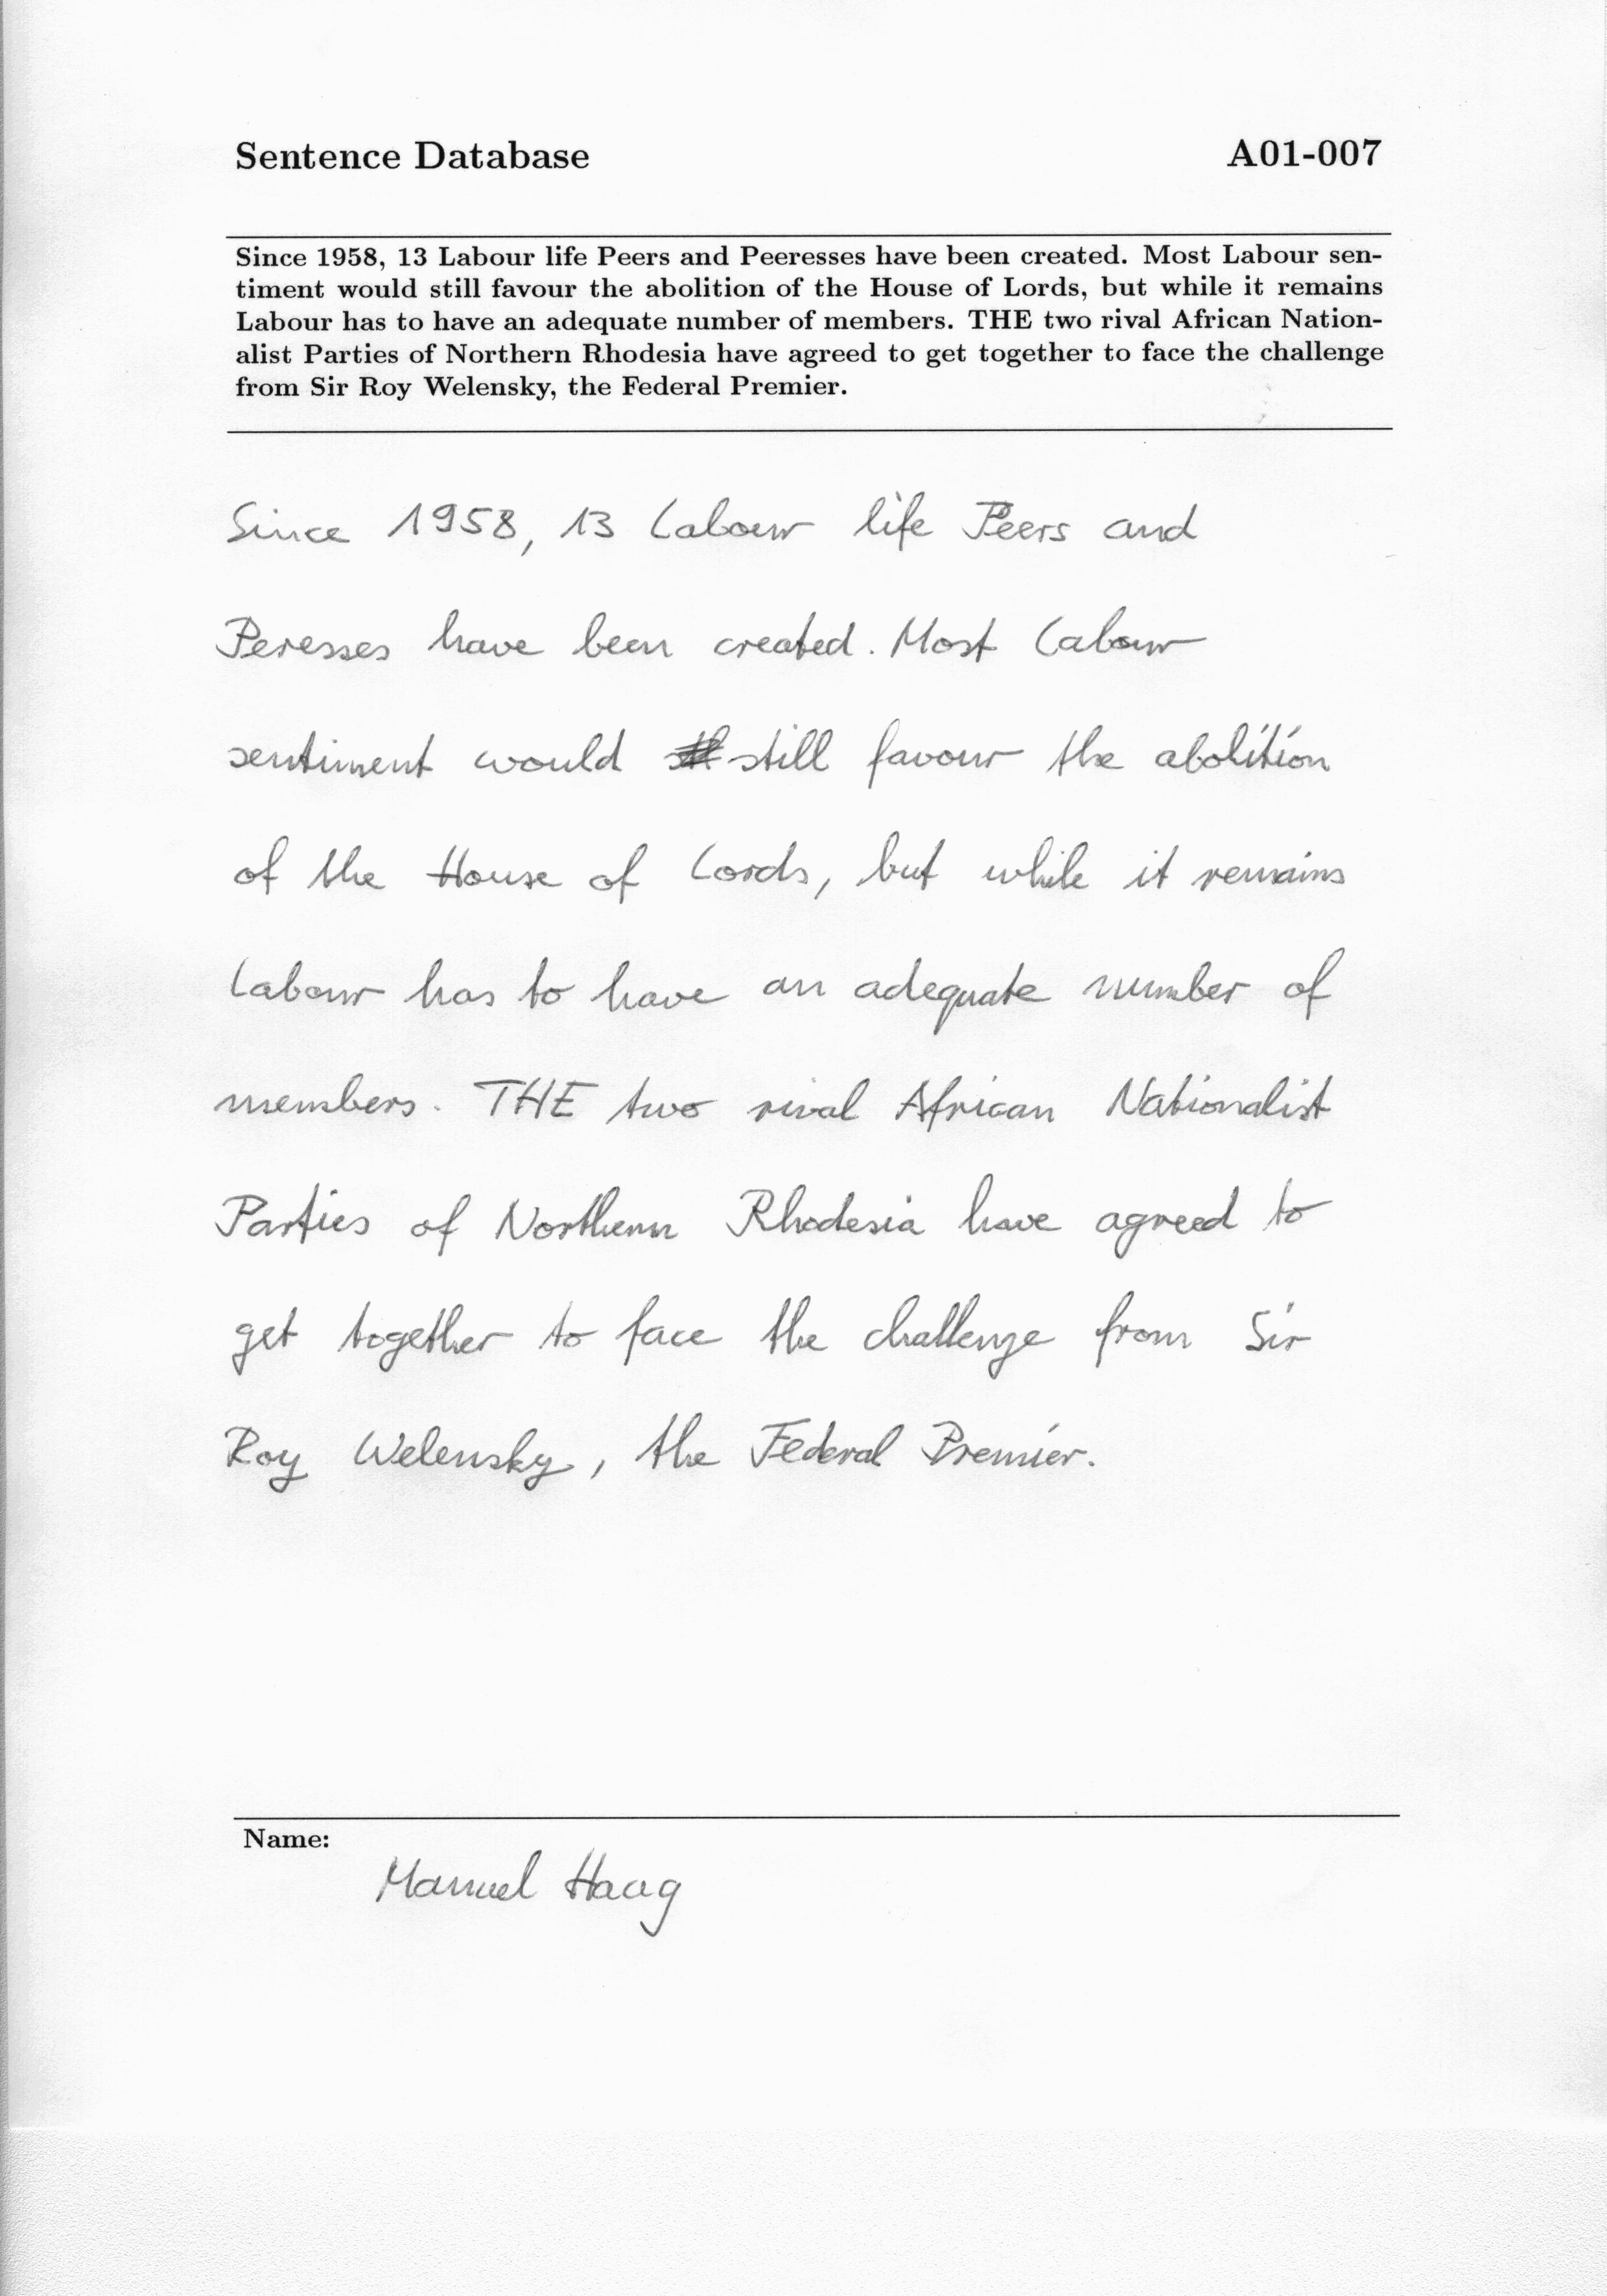 Sentence Database
A01-007
Since 1958, 13 Labour life Peers and Peeresses have been created. Most Labour sen-
timent would still favour the abolition of the House of Lords, but while it remains
Labour has to have an adequate number of members. THE two rival African Nation-
alist Parties of Northern Rhodesia have agreed to get together to face the challenge
from Sir Roy Welensky, the Federal Premier.
Since 1958, 13 Labour life Peers and
Peresses have been created. Most Labour
sentiment would still favour the abolition
of the House of Lords, but while it remains
Labour has to have an adequate number of
members. THE two rival African Nationalist
Parties of Northern Rhodesia have agreed to
get together to face the challenge from Sir
Roy Welensky, the Federal Premier.
Name:
Manuel Haag